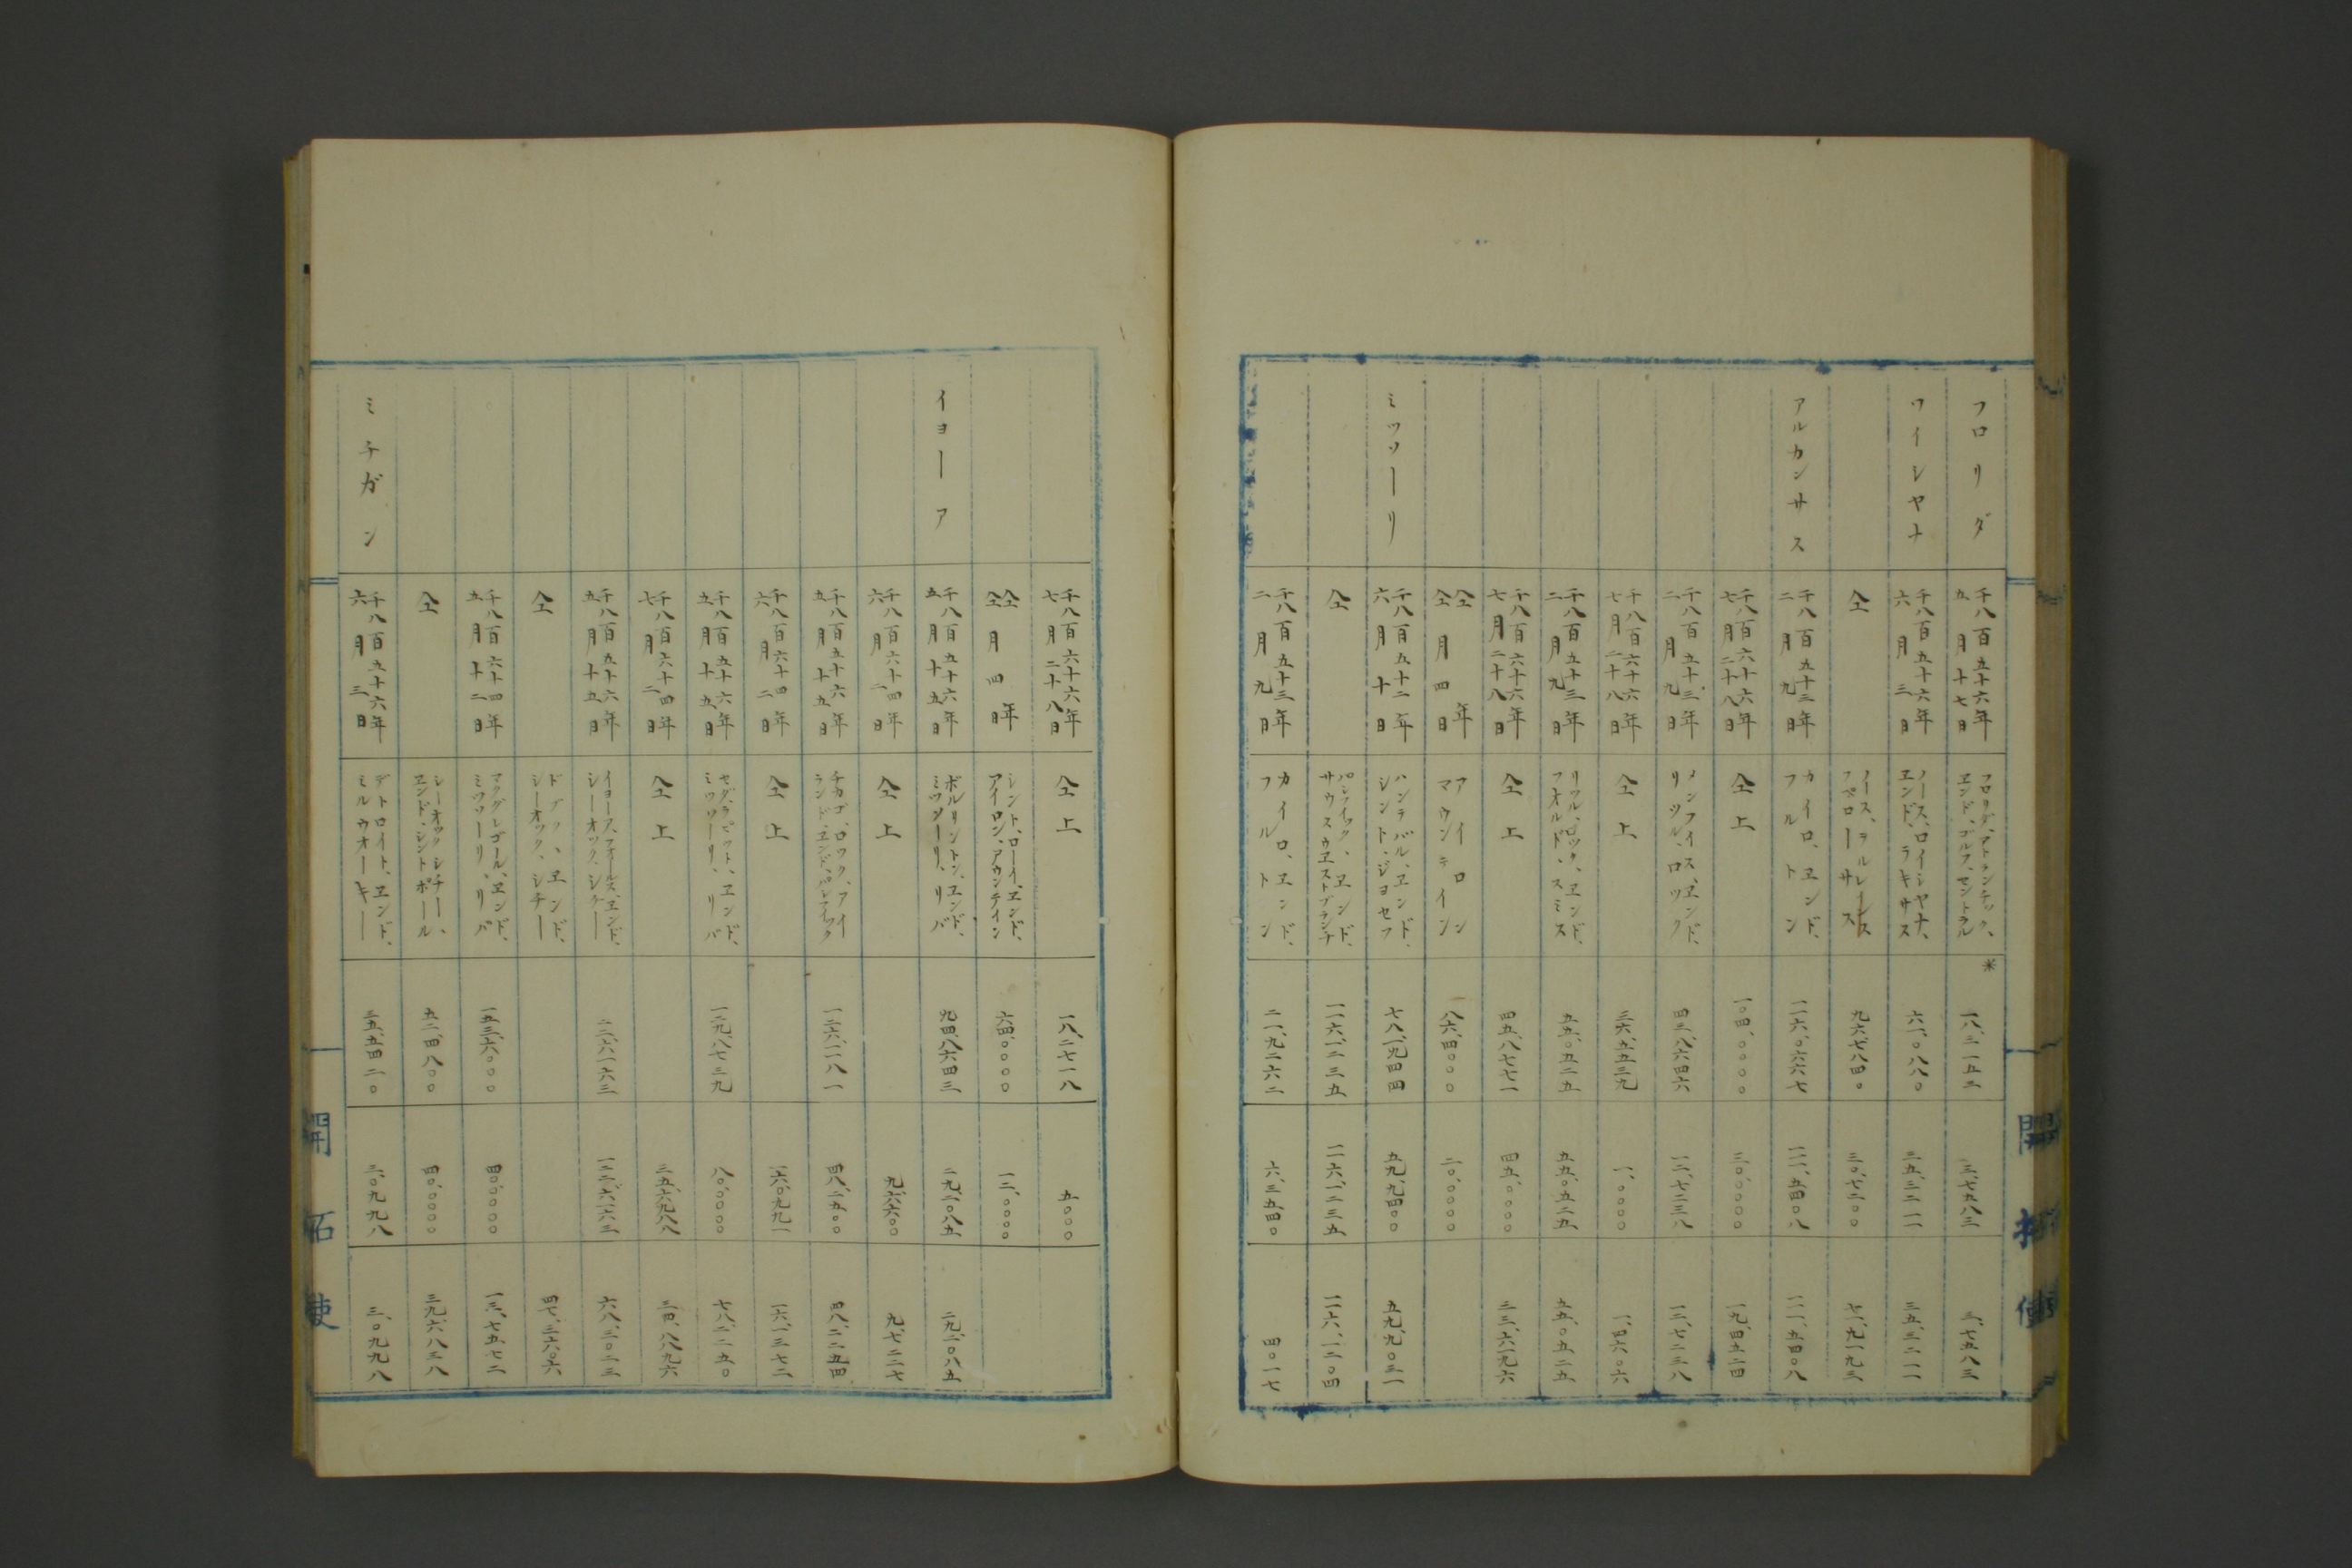 フロリダ
千八百五十六年
五月十七日
フロリダ、アトランチック、
ヱンド、ゴルフ、セントラル
*
ワイシヤナ
千八百五十六年
六月三日
ノース、ロイシヤナ、
ヱンド、ラキサス
六一、〇八八〇
三五、三二一一
三五、三二一一
仝
九六、七八四〇
三〇、七二〇〇
七一、九一九三
アルカンサス
千八百五十三年
二月九日
カイロ、ヱンド、
フルトン
一一六、〇六六七
一一一、五四〇八
一一一、五四〇八
千八百六十六年
七月二十八日
仝上
一〇四、〇〇〇〇
三〇、〇〇〇〇
一九、四五二四
千八百五十三年
二月九日
メンフイス、ヱンド、
リツル、ロツク
四三、八六四六
千八百六十六年
七月二十八日
仝上
三六、五五三九
一、〇〇〇〇
一、四六〇六
千八百五十三年
二月九日
リツル、ロツク、ヱンド、
フオルド、スミス
五五、〇五二五
五五、〇五二五
五五、〇五二五
千八百六十六年
七月二十八日
仝上
四五、八七七一
四五、〇〇〇〇
仝年
仝月四日
アイロン
マウンテイン
八六、四〇〇〇
二〇、〇〇〇〇
ミツソーリ
千八百五十二年
六月十日
ハンラバル、ヱンド、
シント、ジヨセフ
七八、一九四四
五九、九四〇〇
五九、九〇三一
仝
パシフイック、ヱンド、
サウスウヱストブランチ
一一六、一二三五
一一六、一二三五
千八百五十三年
二月九日
カイロ、ヱンド、
フルトン
二一、九二六二
六、三五四〇
四〇一七
千八百六十六年
七月二十八日
仝上
一八、二七一八
五〇〇〇
仝年
仝月四日
シント、ローイ、ヱンド、
アイロン、アウンテイン
六四、〇〇〇〇
一二、〇〇〇〇
イヨーア
千八百五十六年
五月十五日
ボルリントン、ヱンド、
ミツソーリ、リバ
九四、八六四三
二九、二〇八五
二九、二〇八五
千八百六十四年
六月二日
仝上
九、六六〇〇
九、七二二七
千八百五十六年
五月十五日
チカゴ、ロツク、アイ
ランド、ヱンド、パシフイック
一二六、一一八一
四八、二五〇〇
四八、二二五四
千八百六十四年
六月二日
仝上
一六、〇九九一
一六、一三七二
千八百五十六年
五月十五日
セダ、ラピツト、ヱンド、
ミツソーリ、リバ
一二九、八七三九
八〇、〇〇〇〇
七八、二一五〇
千八百六十四年
七月二日
仝上
三五、六九八八
三四、八八九六
千八百五十六年
五月十五日
イヨース、フオールス、ヱンド、
シーオツク、シケー
六八、三〇二三
仝
シーオツク、シチー
四七、三六〇六
千八百六十四年
五月十二日
マクグレゴール、ヱンド、
ミツソーリ、リバ
一五三、六〇〇〇
四〇、〇〇〇〇
一三、七五七二
仝
シーオツクシチー、
ヱンド、シントポール
五二、四八〇〇
四〇、〇〇〇〇
三九、六八三八
ミチガン
千八百五十六年
六月三日
デトロイト、ヱンド、
ミルウオーキー
三五、五四二〇
三、〇九九八
三、〇九九八
開拓使